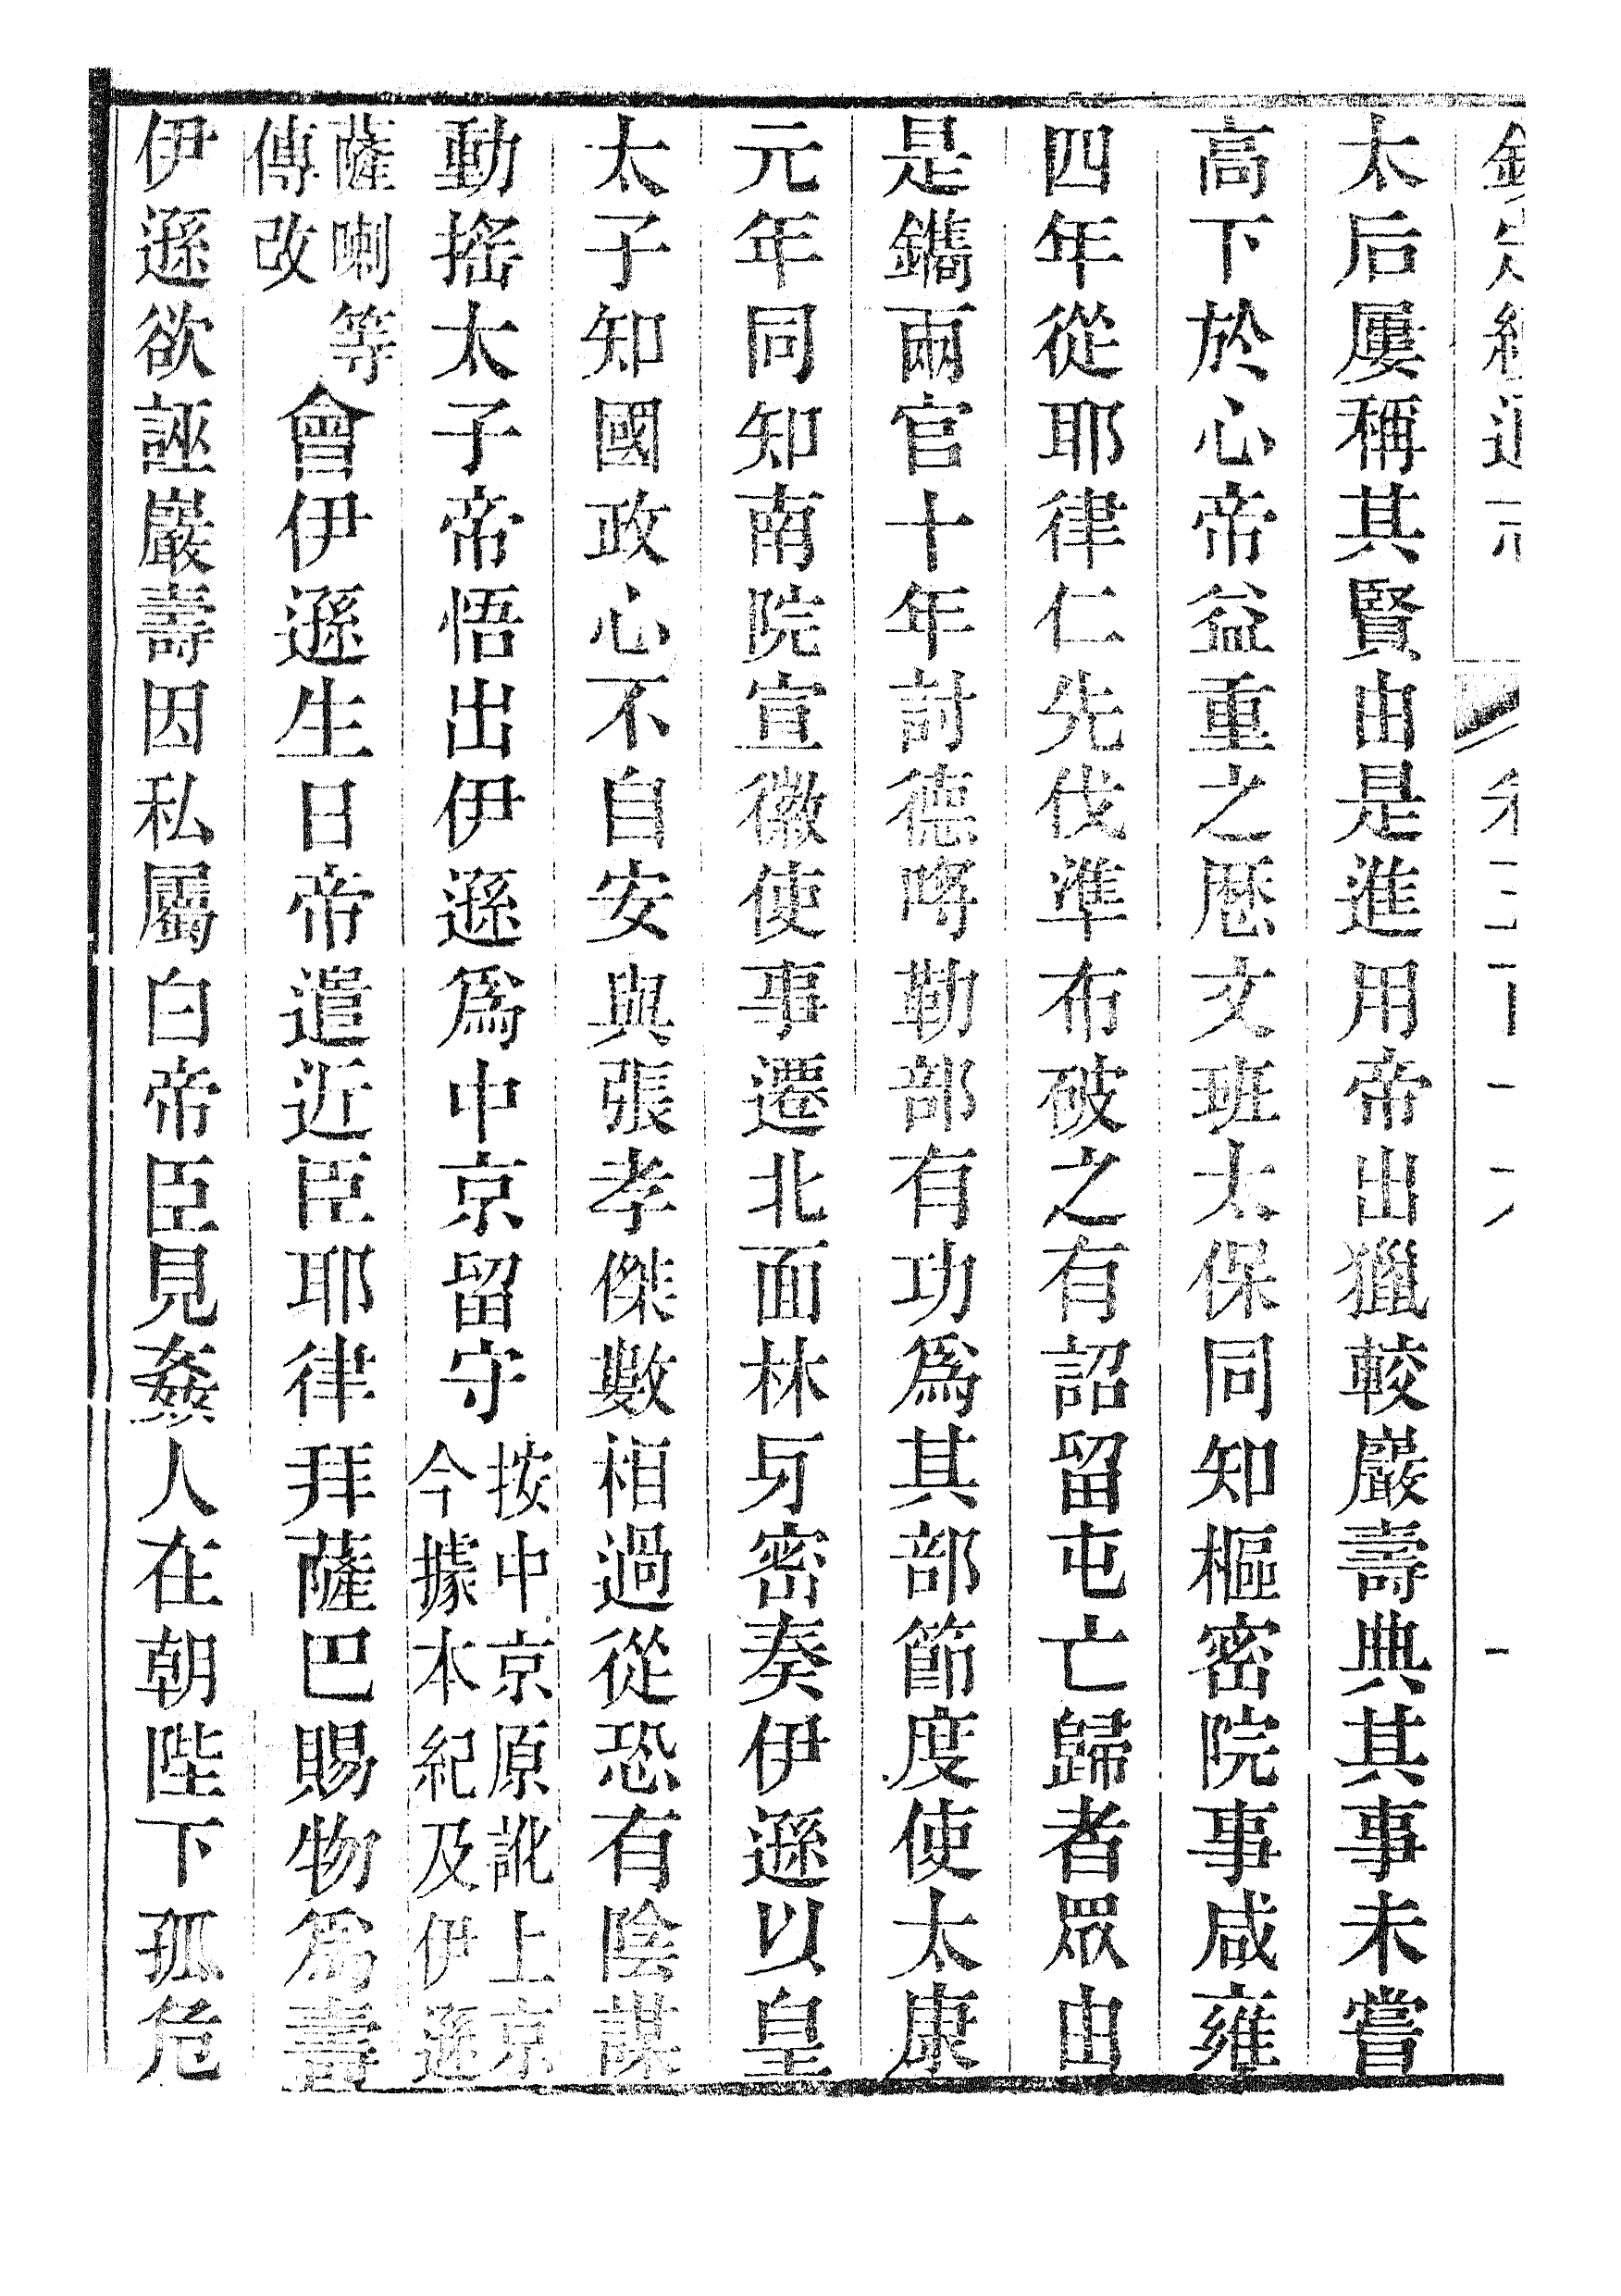 太后屢稱其賢由是進用帝出獵較巖壽典其事未嘗
高下於心帝益重之歷文班太保同知樞密院事咸雍
四年從耶律仁先伐準布破之有詔留屯亡歸者眾由
是鐫兩官十年討德呼勒部有功爲其部節度使太康
元年同知南院宣徽使事遷北面林牙密奏伊遜以皇
太子知國政心不自安與張孝傑數相過從恐有陰謀
動搖太子帝悟出伊遜爲中京留守按中京原訛上京
今據本紀及伊遜
薩喇等
傳改會伊遜生日帝遣近臣耶律拜薩巴賜物爲壽
伊遜欲誣巖壽因私屬白帝臣見姦人在朝陛下孤危